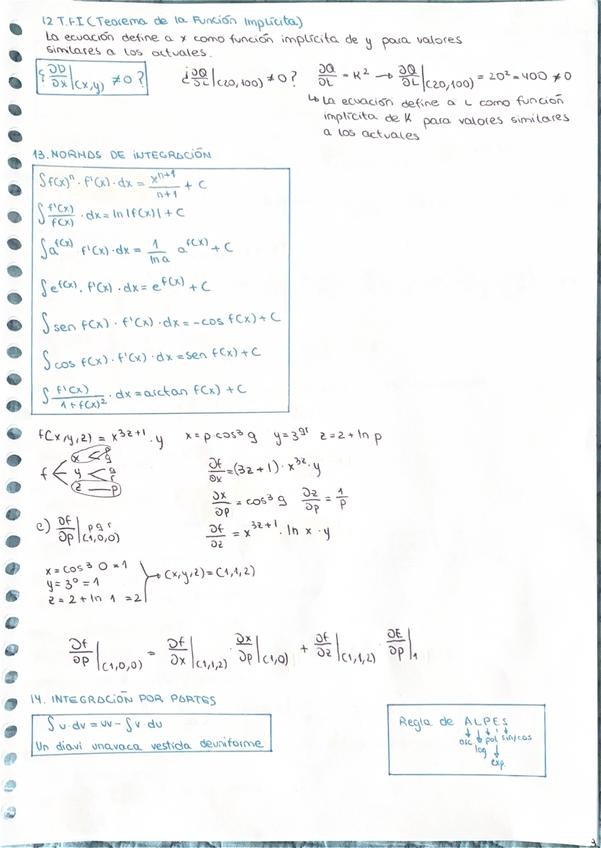 12 T.F.I (Teorema de la Función Implícita)
La ecuación define a x como función implícita de y para valores
similares a los actuales.
¿∂D/∂x|(x,y) ≠ 0? ¿∂Q/∂L|(20,100) ≠ 0? ∂Q/∂L = K² → ∂Q/∂L|(20,100) = 20² = 400 ≠ 0
↳ La ecuación define a L como función
implícita de K para valores similares
a los actuales
13. NORMAS DE INTEGRACIÓN
∫f(x)ⁿ · f'(x) · dx = xⁿ⁺¹/n+1 + C
∫f'(x)/f(x) · dx = ln|f(x)| + C
∫a^f(x) f'(x) · dx = 1/ln a a^f(x) + C
∫e^f(x) · f'(x) · dx = e^f(x) + C
∫sen f(x) · f'(x) · dx = -cos f(x) + C
∫cos f(x) · f'(x) · dx = sen f(x) + C
∫f'(x)/1+f(x)² · dx = arctan f(x) + C
f(x,y,z) = x^3z+1 · y x = p cos³ q y = 3^qr z = 2 + ln p
f < x < p q
y < q r
z — p
∂f/∂x = (3z+1) · x^3z · y
∂x/∂p = cos³ q ∂z/∂p = 1/p
e) ∂f/∂p|(1,0,0) p q r
∂f/∂z = x^3z+1 · ln x · y
x = cos³ 0 = 1
y = 3⁰ = 1 → (x,y,z) = (1,1,2)
z = 2 + ln 1 = 2
∂f/∂p|(1,0,0) = ∂f/∂x|(1,1,2) · ∂x/∂p|(1,0) + ∂f/∂z|(1,1,2) · ∂z/∂p|1
14. INTEGRACIÓN POR PARTES
∫u · dv = uv - ∫v du
Un diavi unavaca vestida deuniforme
Regla de ALPES
arc pol sin/cos
log
exp.
3